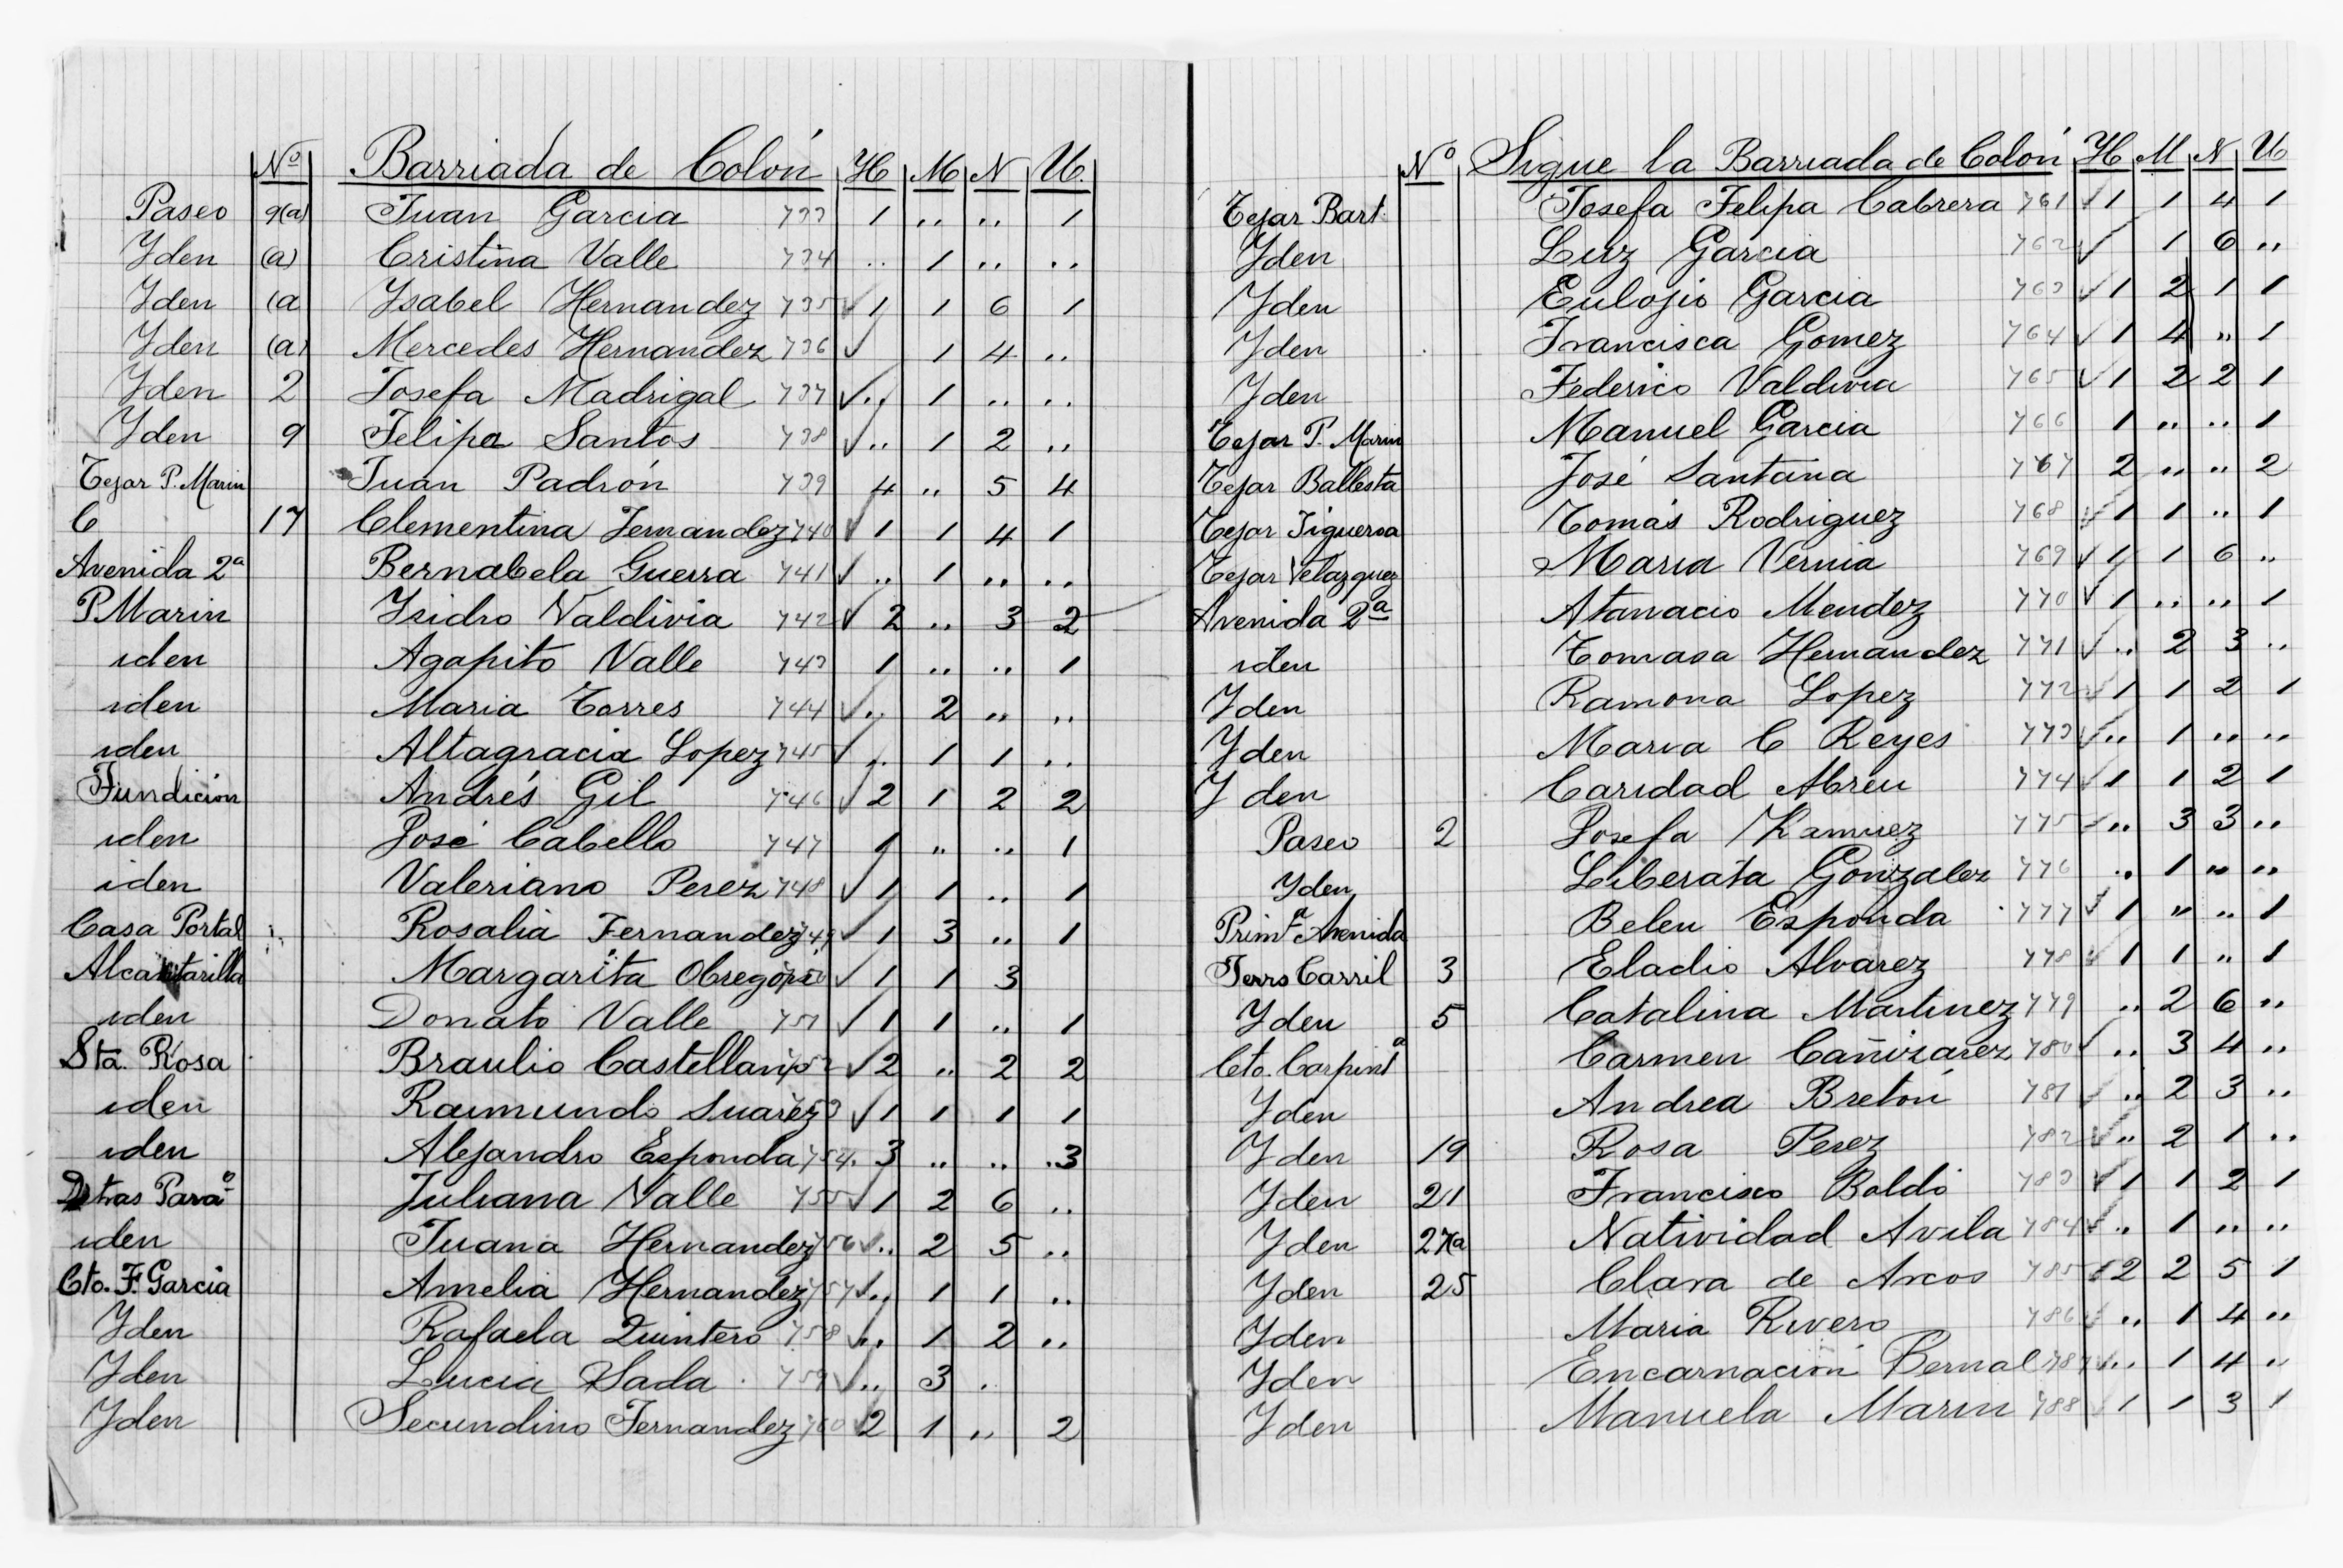 Nº Barriada de Colón H M N U.
Paseo 9(a) Juan Garcia 733 1 .. .. 1
Yden (a) Cristina Valle 734 .. 1 .. ..
Yden (a Ysabel Hernandez 735 ✓ 1 1 6 1
Yden (a) Mercedes Hernandez 736 ✓ 1 4 ..
Yden 2 Josefa Madrigal 737 ✓ .. 1 .. ..
Yden 9 Felipa Santos 738 ✓ .. 1 2 ..
Tejar P. Marin Juan Padrón 739 4 .. 5 4
C 17 Clementina Fernandez 740 ✓ 1 1 4 1
Avenida 2ª Bernabela Guerra 741 ✓ .. 1 .. ..
P Marin Ysidro Valdivia 742 ✓ 2 .. 3 2
iden Agapito Valle 743 1 .. .. 1
iden Maria Torres 744 ✓ .. 2 .. ..
iden Altagracia Lopez 745 ✓ .. 1 1 ..
Fundición Andrés Gil 746 ✓ 2 1 2 2
iden José Cabello 747 1 .. .. 1
iden Valeriano Perez 748 ✓ 1 1 .. 1
Casa Portal Rosalia Fernandez 749 ✓ 1 3 .. 1
Alcantarilla Margarita Obregón 750 ✓ 1 1 3
iden Donato Valle 751 ✓ 1 1 .. 1
Sta. Rosa Braulio Castellano 752 ✓ 2 .. 2 2
iden Raimundo Suarez 753 ✓ 1 1 1 1
iden Alejandro Esponda 754. 3 .. .. .3
Dtras Paraº Juliana Valle 755 ✓ 1 2 6 ..
iden Juana Hernandez 756 ✓ .. 2 5 ..
Cto. F. Garcia Amelia Hernandez 757 ✓ .. 1 1 ..
Yden Rafaela Quintero 758 ✓ .. 1 2 ..
Yden Lucia Sada 759 ✓ .. 3 .
Yden Secundino Fernandez 760 ✓ 2 1 .. 2
Nº Sigue la Barriada de Colón H M N U
Tejar Bart. Josefa Felipa Cabrera 761 ✓ 1 1 4 1
Yden Luz Garcia 762 ✓ 1 6 ..
Yden Eulojio Garcia 763 ✓ 1 2 1 1
Yden Francisca Gomez 764 ✓ 1 4 .. 1
Yden Federico Valdivia 765 ✓ 1 2 2 1
Tejar P. Marin Manuel Garcia 766 1 .. .. 1
Tejar Ballesta José Santana 767 2 .. .. 2
Tejar Figueroa Tomás Rodriguez 768 ✓ 1 1 .. 1
Tejar Velazquez Maria Vernia 769 ✓ 1 1 6 ..
Avenida 2ª Atanacio Mendez 770 ✓ 1 .. .. 1
iden Tomasa Hernandez 771 ✓ .. 2 3 ..
Yden Ramona Lopez 772 ✓ 1 1 2 1
Yden Maria C Reyes 773 ✓ .. 1 .. ..
Yden Caridad Abreu 774 ✓ 1 1 2 1
Paseo 2 Josefa Ramirez 775 ✓ .. 3 3 ..
Yden Liberata Gonzalez 776 .. 1 .. ..
Primª Avenida Belen Esponda 777 ✓ 1 .. .. 1
Ferro Carril 3 Eladio Alvarez 778 ✓ 1 1 .. 1
Yden 5 Catalina Martinez 779 .. 2 6 ..
Cto. Carpintª Carmen Cañizarez 780 ✓ .. 3 4 ..
Yden Andrea Bretón 781 ✓ .. 2 3 ..
Yden 19 Rosa Perez 782 ✓ .. 2 1 ..
Yden 21 Francisco Boldó 783 ✓ 1 1 2 1
Yden 27(a Natividad Avila 784 ✓ .. 1 .. ..
Yden 25 Clara de Arcos 785 ✓ 2 2 5 1
Yden Maria Rivero 786 ✓ .. 1 4 ..
Yden Encarnación Bernal 787 ✓ .. 1 4 ..
Yden Manuela Marin 788 ✓ 1 1 3 1